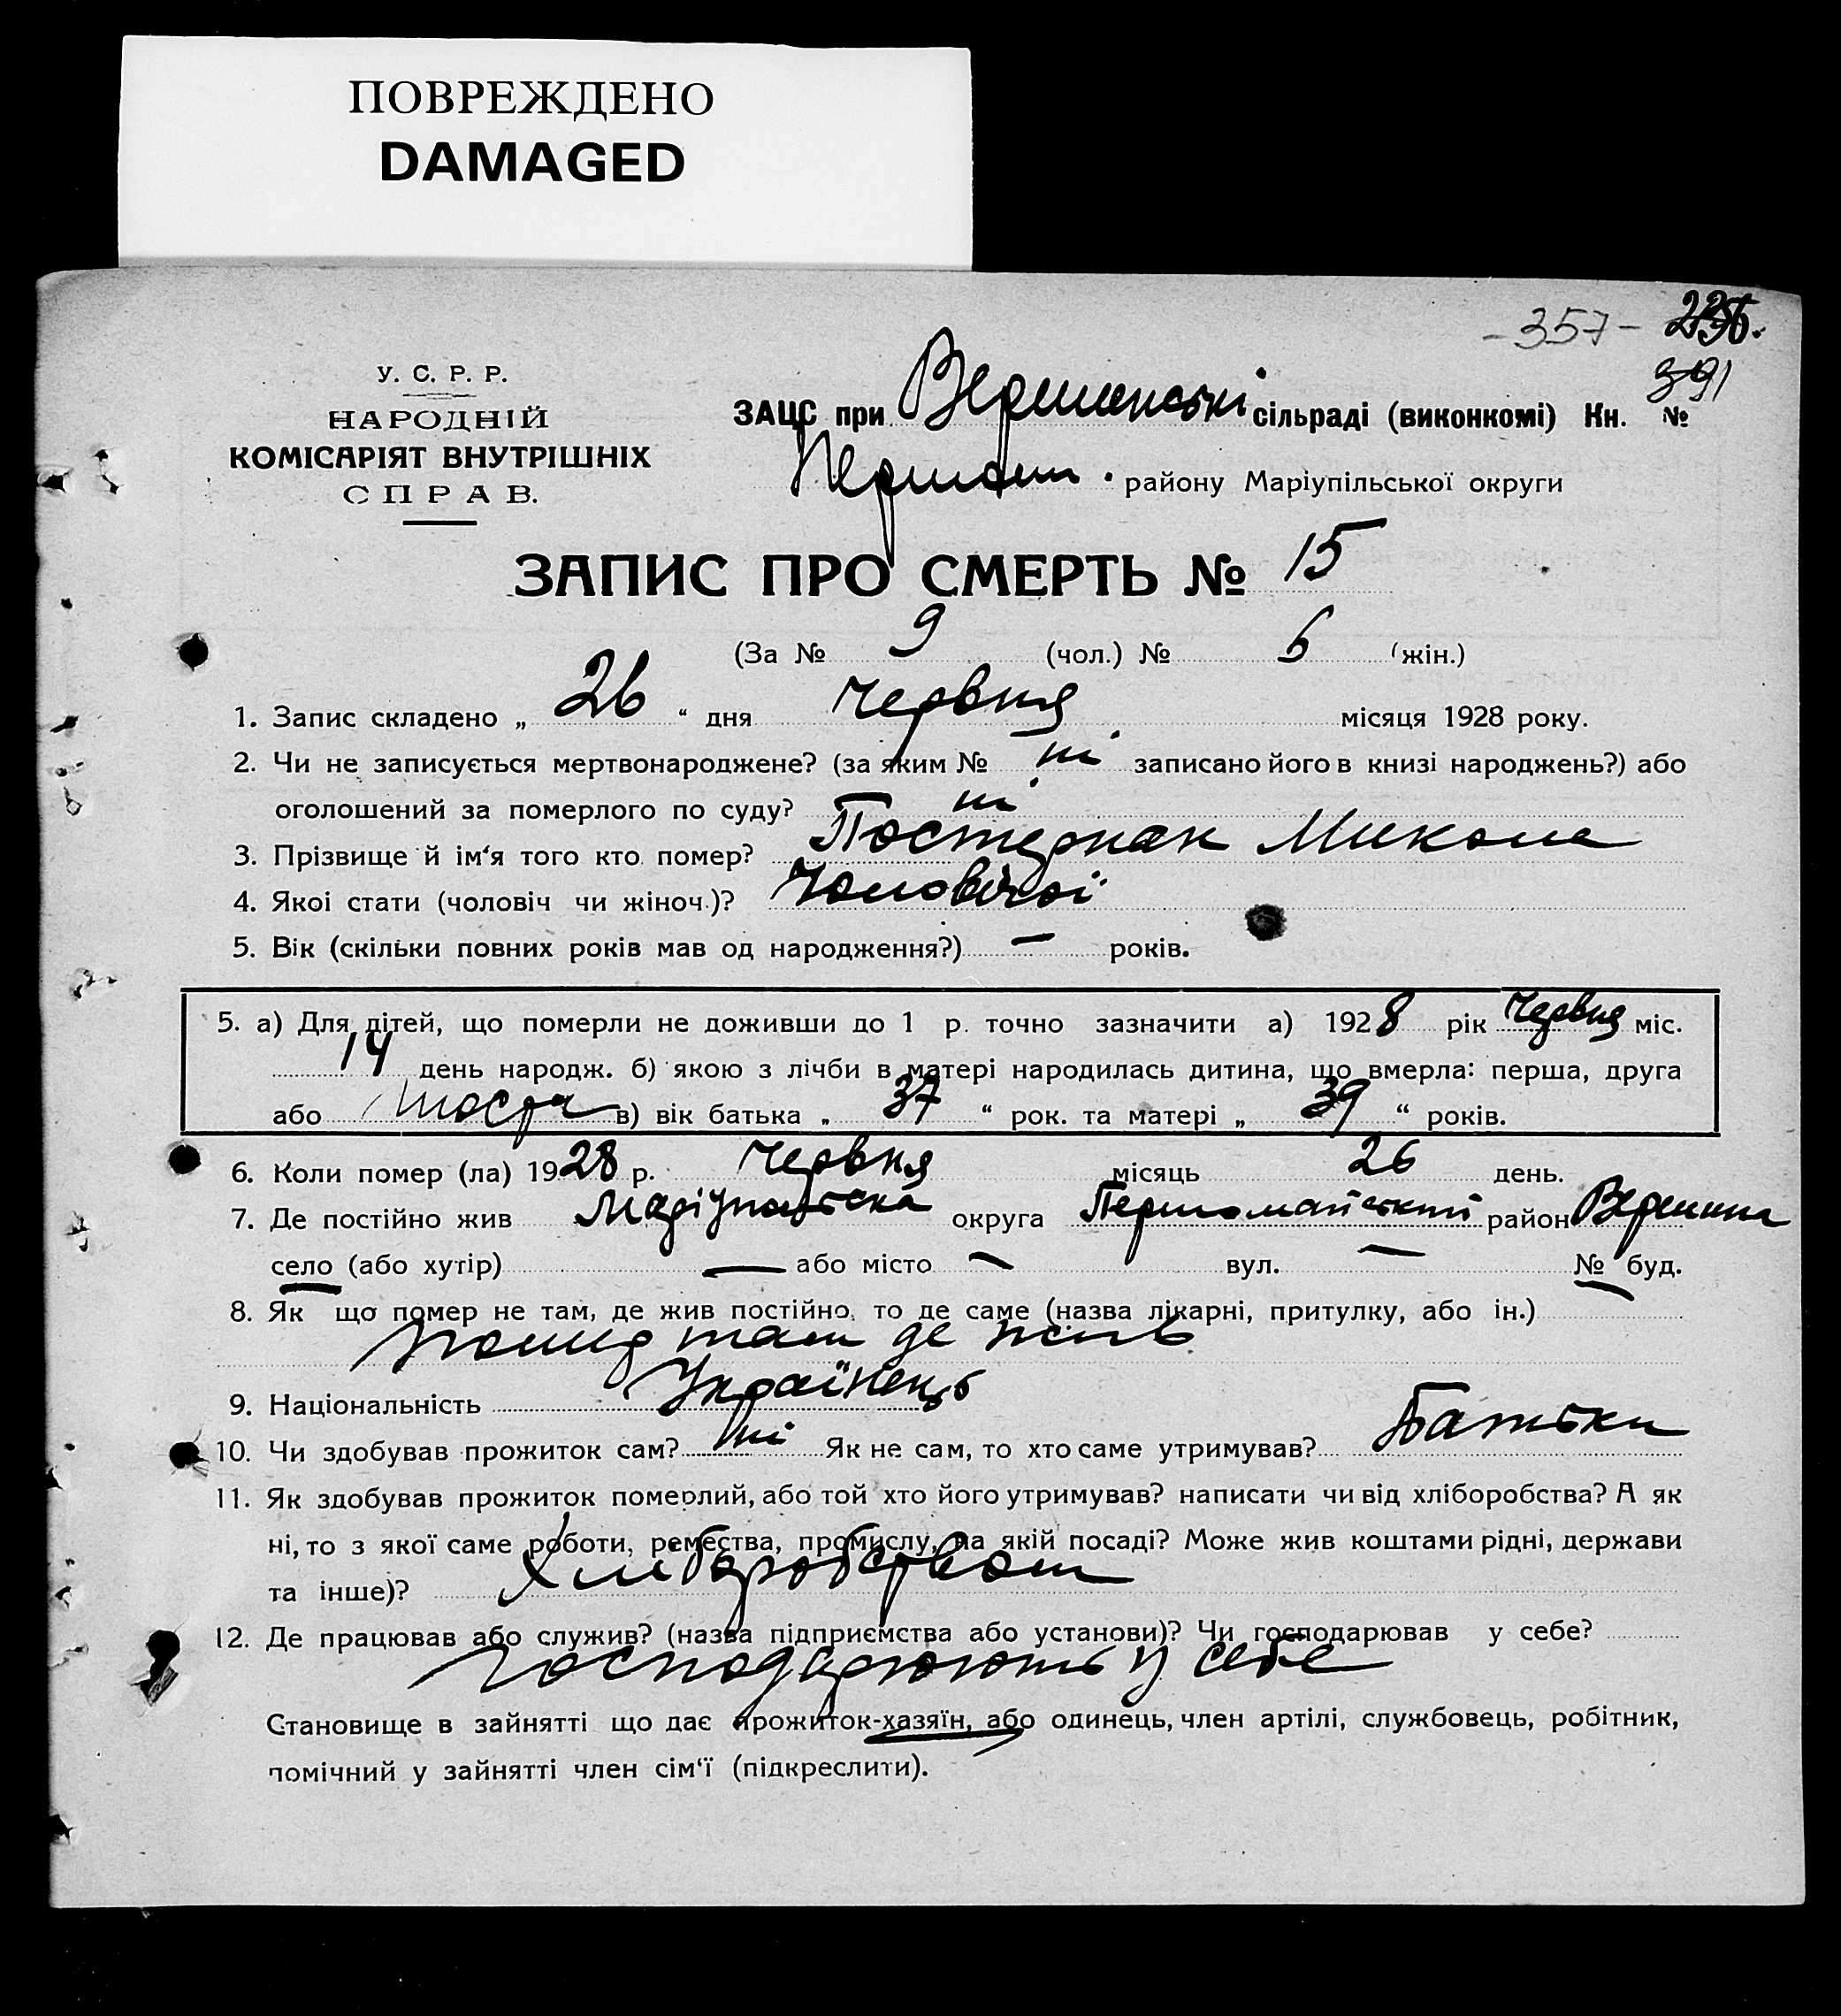 ПОВРЕЖДЕНО
DAMAGED
-357-
391
У. С. Р. Р.
НАРОДНІЙ
КОМІСАРІЯТ ВНУТРІШНІХ
СПРАВ.
ЗАЦС при Вершинській сільраді (виконкомі) Кн. №
Першом. району Маріупільської округи
ЗАПИС ПРО СМЕРТЬ № 15
(За № 9 (чол.) № 6 (жін.)
1. Запис складено „ 26 “ дня червня місяця 1928 року.
2. Чи не записується мертвонароджене? (за яким № ні записано його в книзі народжень?) або
оголошений за померлого по суду? ні
3. Прізвище й ім‘я того кто помер? Постернак Микола
4. Якоі стати (чоловіч чи жіноч.)? Чоловічої
5. Вік (скільки повних років мав од народження?) — років.
5. а) Для дітей, що померли не доживши до 1 р. точно зазначити а) 1928 рік Червня міс.
14 день народж. б) якою з лічби в матері народилась дитина, що вмерла: перша, друга
або шоста в) вік батька „ 37 “ рок. та матері „ 39 “ років.
6. Коли помер (ла) 1928 р. Червня місяць 26 день.
7. Де постійно жив Маріупольська округа Першомайський район Вершина
село (або хутір) — або місто — вул. — № буд.
8. Як що помер не там, де жив постійно, то де саме (назва лікарні, притулку, або ін.)
помер там де жив
9. Національність Українець
10. Чи здобував прожиток сам? ні Як не сам, то хто саме утримував? Батьки
11. Як здобував прожиток померлий, або той хто його утримував? написати чи від хліборобства? А як
ні, то з якої саме роботи, ремества, промислу, на якій посаді? Може жив коштами рідні, держави
та інше)? Хліборобством
12. Де працював або служив? (назва підприємства або установи)? Чи господарював у себе?
господарюють у себе
Становище в зайнятті що дає прожиток-хазяїн, або одинець, член артілі, службовець, робітник,
помічний у зайнятті член сім‘ї (підкреслити).